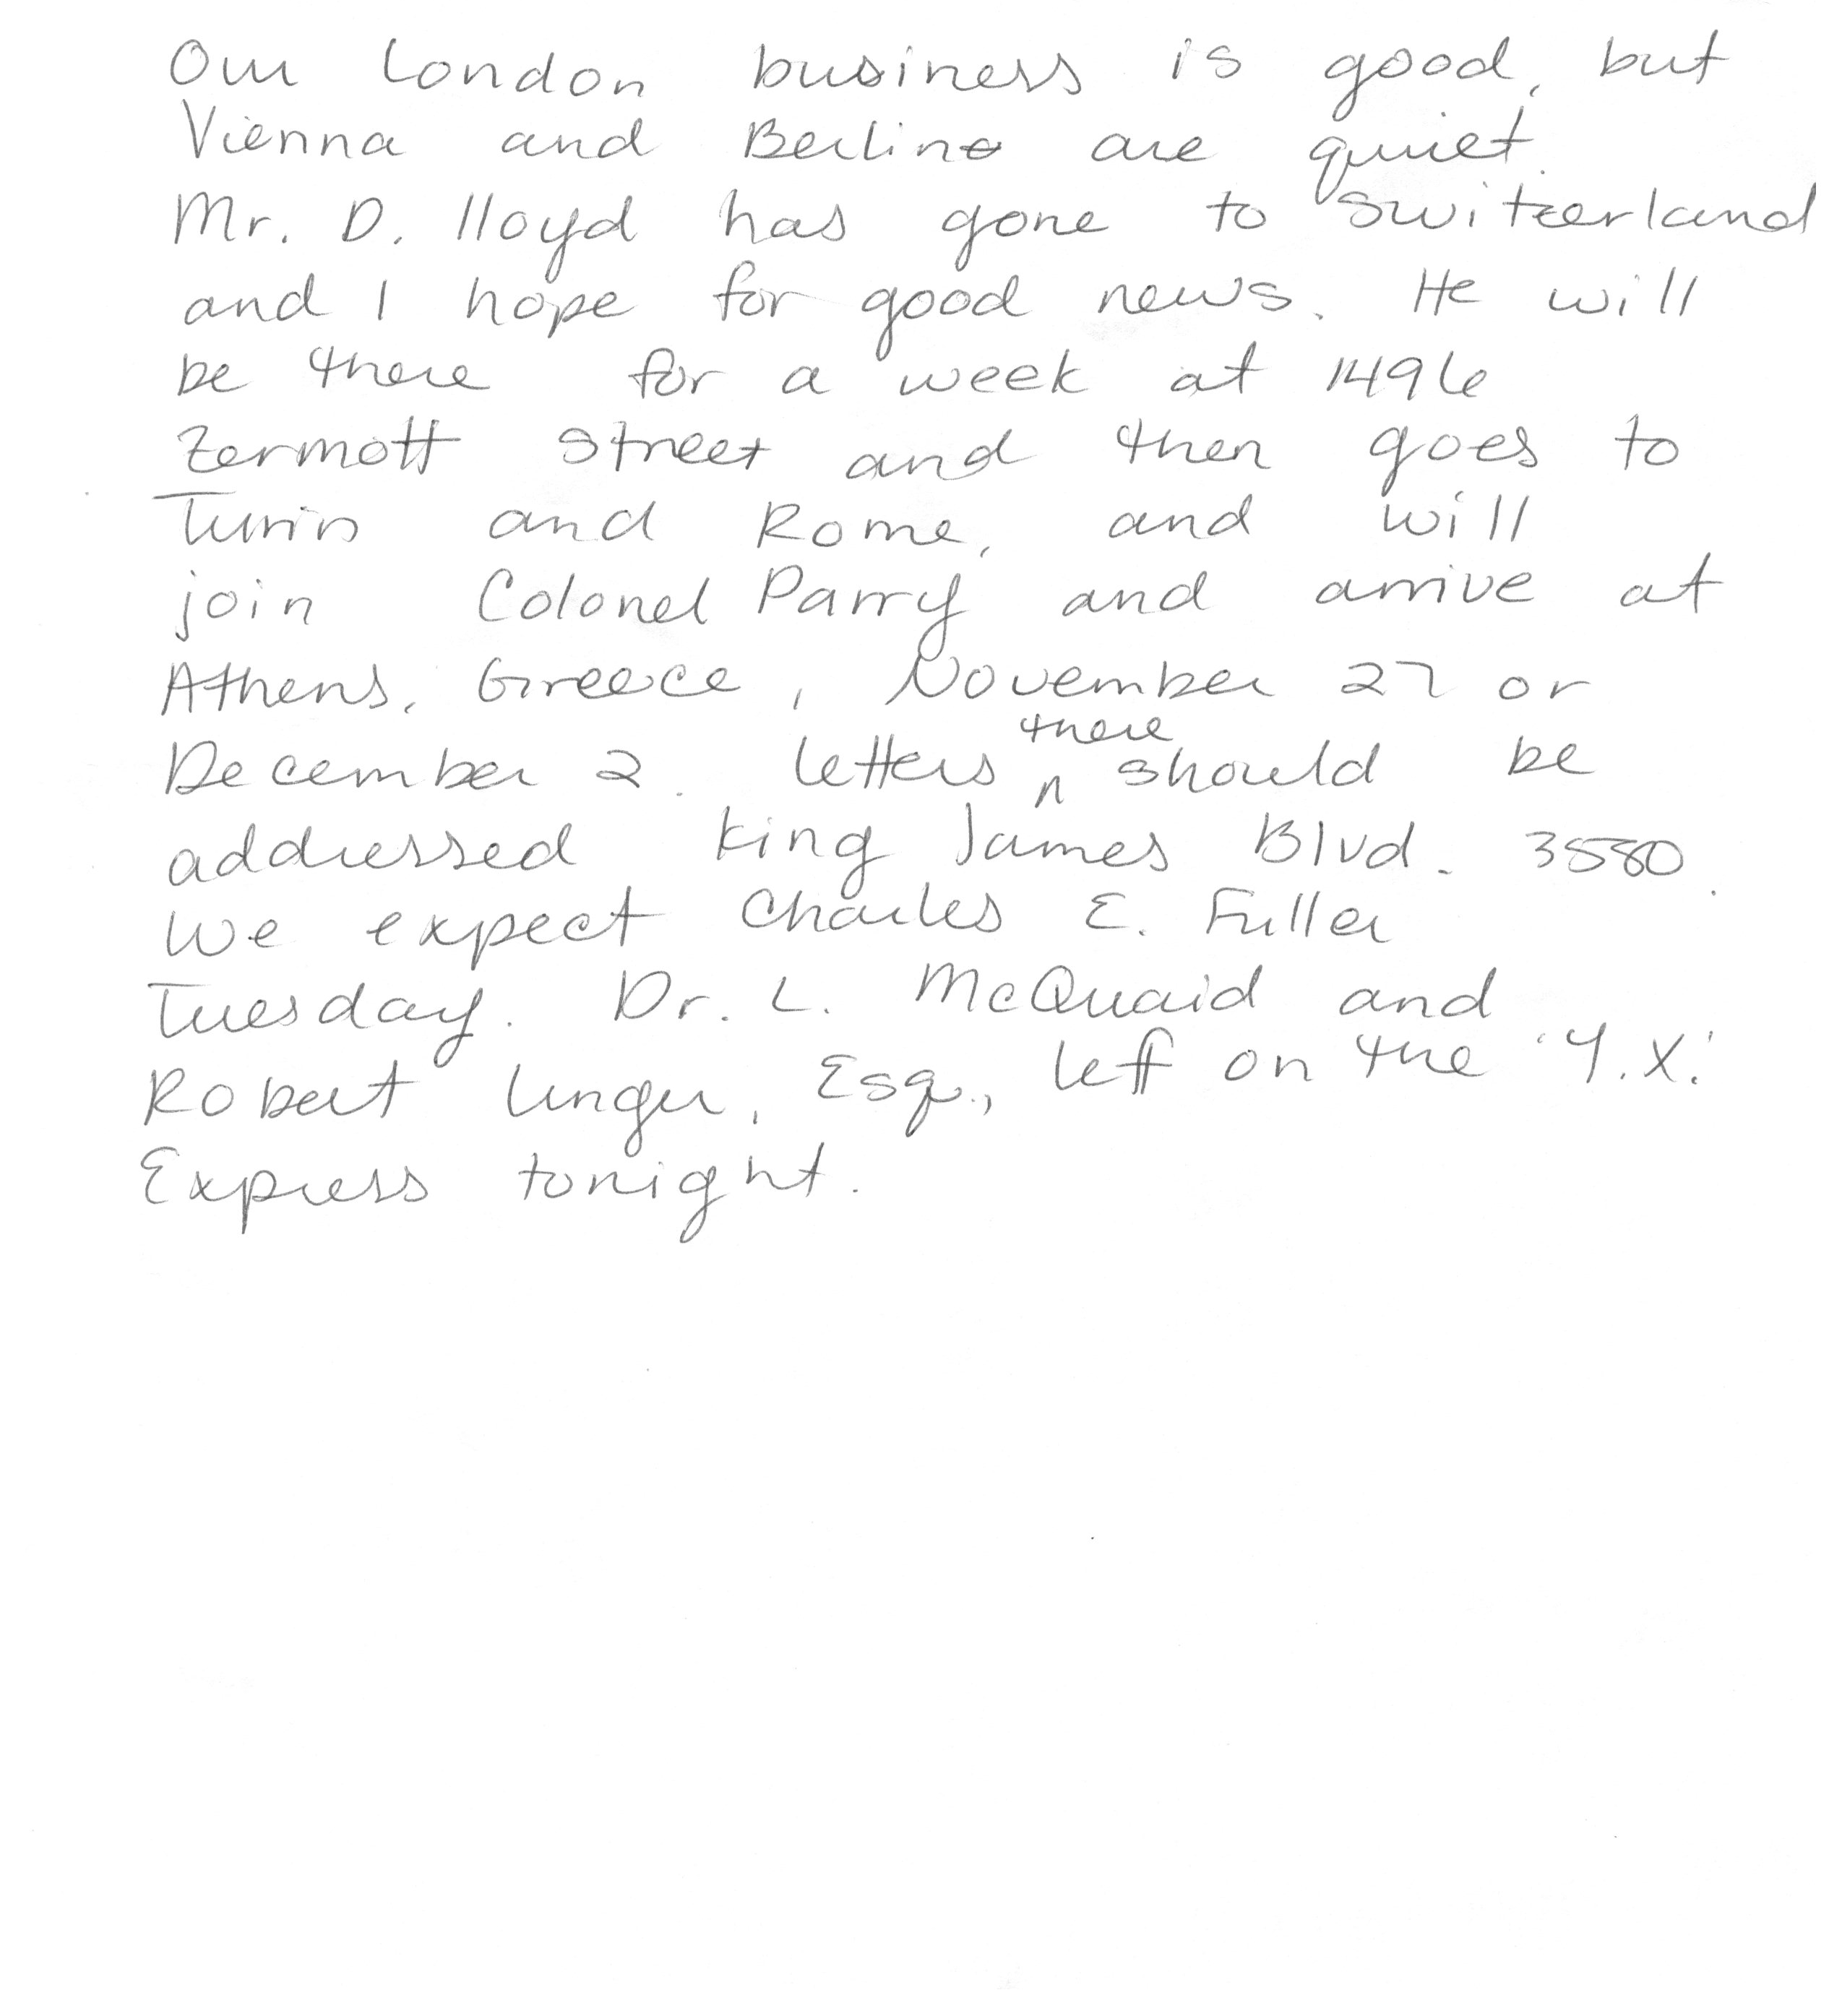 Our London business is good, but
Vienna and Berlin are quiet.
Mr. D. Lloyd has gone to Switzerland
and I hope for good news. He will
be there for a week at 1496
Zermott Street and then goes to
Turin and Rome, and will
join Colonel Parry and arrive at
Athens, Greece, November 27 or
December 2. Letters there should be
addressed King James Blvd. 3580.
We expect Charles E. Fuller
Tuesday. Dr. L. McQuaid and
Robert Unger, Esq., left on the 'Y.X.'
Express tonight.